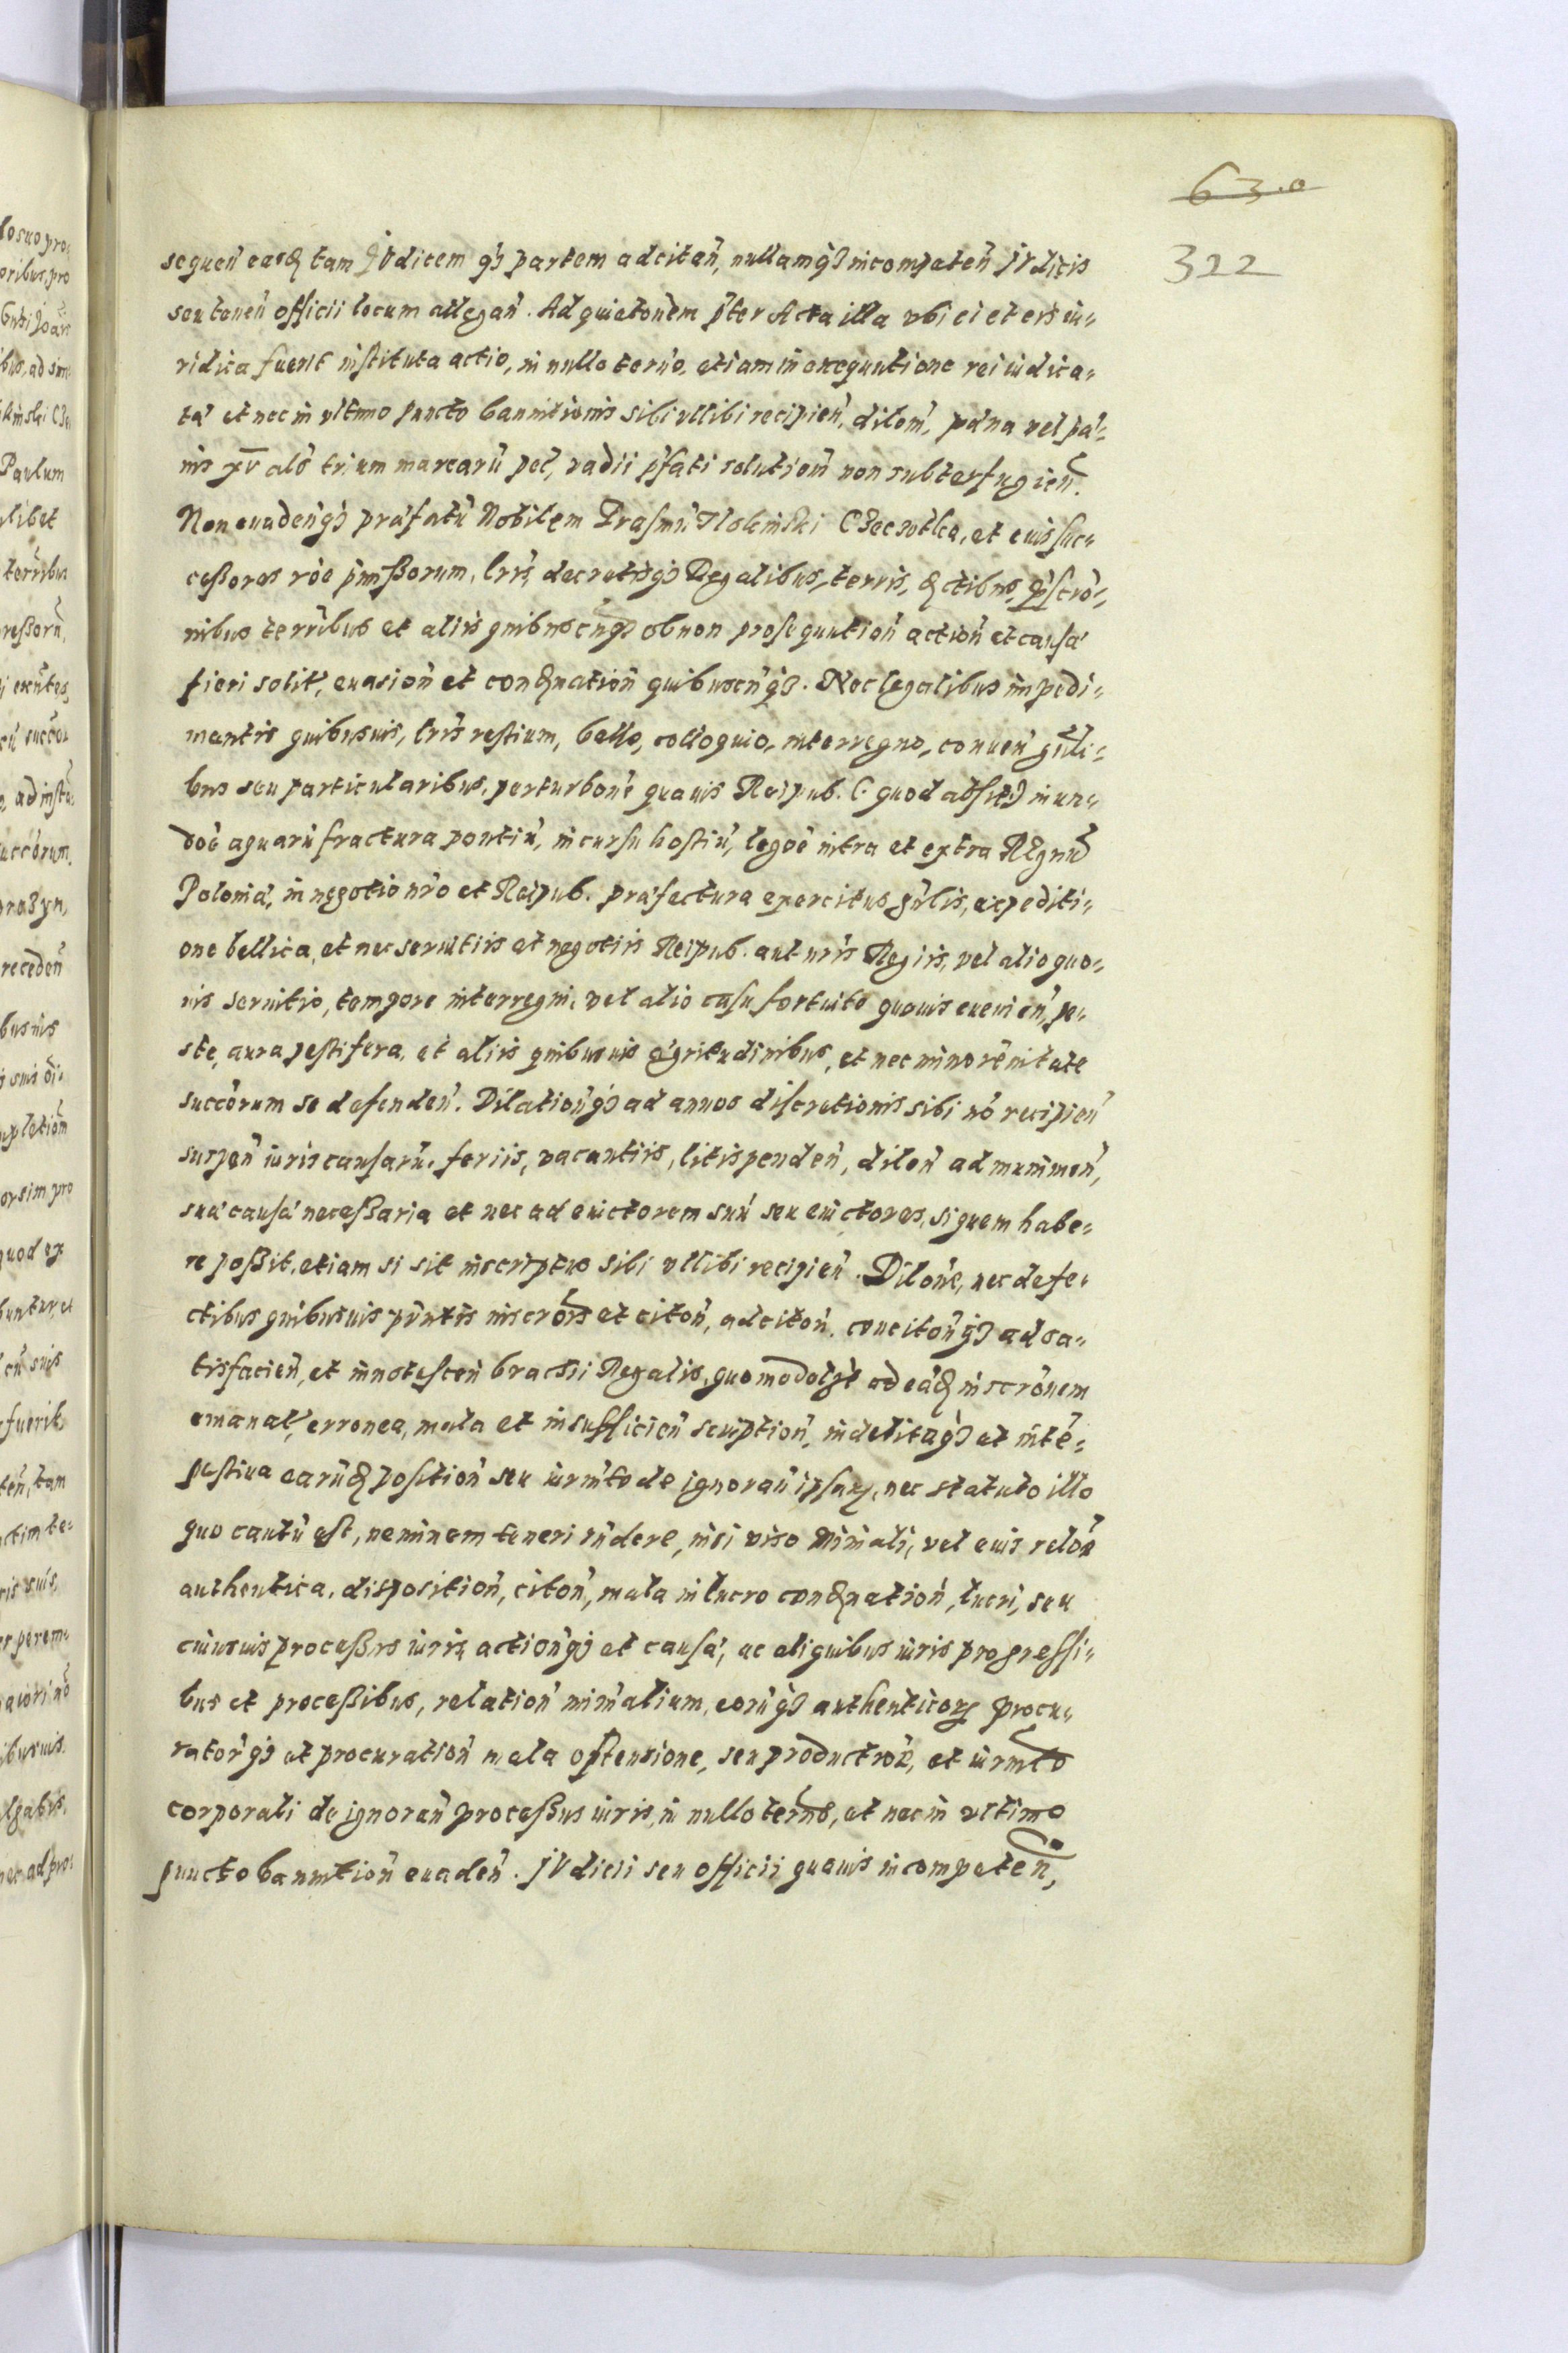 63.0
322
sequeñ easdē tam JUdicem q̃ȝ partem adciteñ, nullamq̃ȝ incompeteñ JUdicis
seu teneñ officii locum allegañ. Ad quietoñem p̃ter Acta illa ubi ei et eis iu=
ridica fuerit instituta actio, in nullo termõ, etiam in exequutione rei iudica=
tæ et nec in ultimo puncto bannitionis sibi ullibi recipieñ, diloñi, pæna vel pæ=
nis xv als trium marcarũ pec̃, vadii p̃fati solutioñ non subterfugieñ.
Non euadeñq̃ȝ præfatũ Nobilem Erasmũ Czeczotka, et euis suc=
ceßores rõe p̃mißorum, lr̃is, decretisq̃ȝ Regalibus, terris, actibus, p̃scrõ=
nibus terr̃ibus et aliis quibuscũq̃ȝ ob non prosequutioñ actioñ et causæ
fieri solit̃, euasioñ et condẽnatioñ quibuscũq̃ȝ. Nec legalibus impedi=
mentis quibusuis, lr̃is restium, bello, colloquio, interregno, conueñ gñli=
bus seu particularibus, perturboñe quauis Reipub. (quod absit) inun=
doẽ aquarũ fractura pontiũ, incursu hostiũ, legoẽ intra et extra REgnũ
Poloniæ, in negotio nr̃o et Reipub. præfectura exercitus gñlis, expediti=
one bellica, et nec seruitiis et negotiis Reipub. aut nr̃is Regiis, vel alio quo=
uis seruitio, tempore interregni, vel alio casu fortuito quouis eueñieñ, pe=
ste, aura pestifera, et aliis quibusuis ægritudinibus, et nec minorẽnitate
succõrum se defendeñ. Dilatioñq̃ȝ ad annos discretionis sibi nõ recipieñ
suspeñ iuris causarũ, feriis, vacantiis, litispendeñ, diloñ ad munimeñ,
suæ causæ neceßaria et nec ad euictorem suũ seu euictores, si quem habe=
re poßit, etiam si sit inscriptus sibi ullibi recipieñ. Diloñe, nec defe=
ctibus quibusuis pñtis inscrõis et citoñ, adcitoñ. concitoñq̃ȝ ad sa=
tisfacieñ, et innotesceñ brachii Regalis, quomodolȝt ad eãdē inscrõnem
emanat̃, erronea, mala et insufficieñ scriptioñ, indebitaq̃ȝ et intẽ=
pestiua earũdē positioñ seu iurm̃to de ignorañ ipsarȝ, nec statuto illo
quo cautũ est, neminem teneri rñdere, nisi viso Minĩali, vel euis reloẽ
authentica, dispositioñ, citoñ, mala in lucro condẽnatioñ, lucri, seu
cuiusuis proceßus iuris, actioñq̃ȝ et causæ, ac aliquibus iuris progressi=
bus et proceßibus, relatioñ minĩalium, eorũq̃ȝ authenticorȝ procu=
ratorq̃ȝ et procuratioñ mala ostensione, seu productioẽ, et iurm̃to
corporali de ignorañ proceßus iuris, in nullo termõ, et nec in ultimo
puncto bannitioñ euadeñ. JUdicii seu officii quauis incompeteñ,